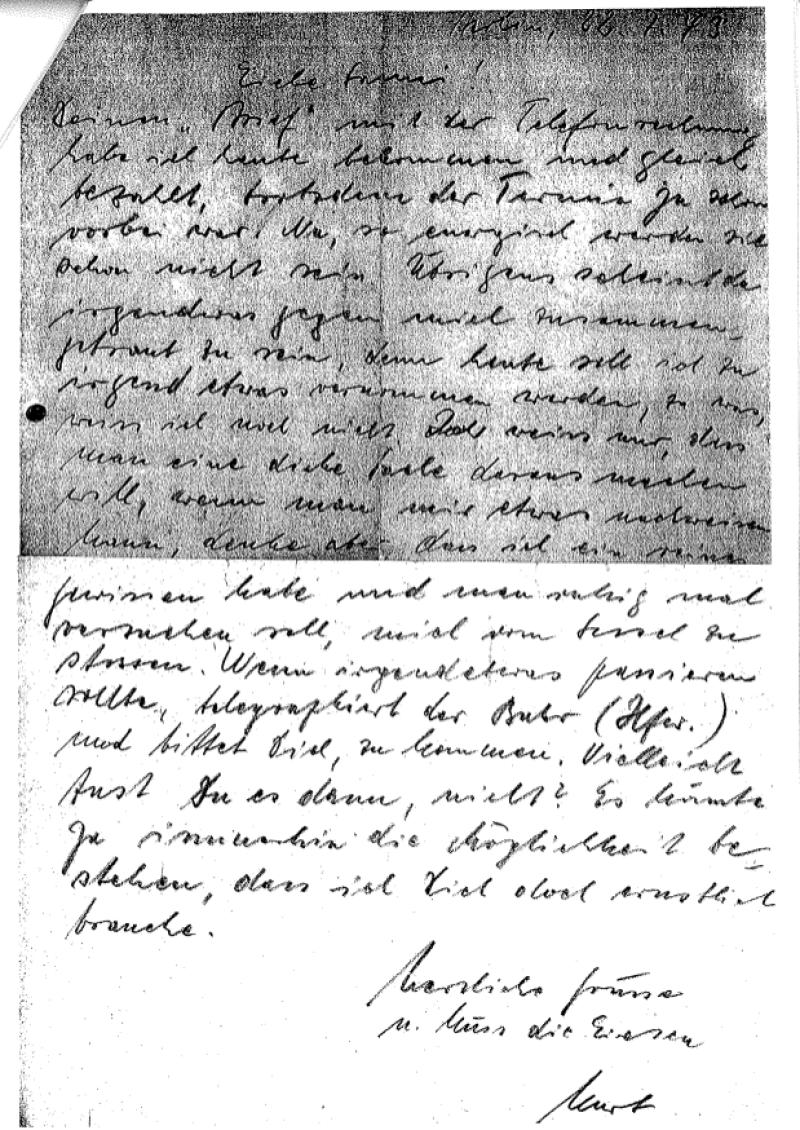 Berlin, 26. 7. 43
Liebe Sonni!
Deinen "Brief" mit der Telefonrechnung
habe ich heute bekommen und gleich
bezahlt, trotzdem der Termin ja schon
vorbei war. Na, so energisch werden sie
schon nicht sein. Übrigens scheint da
irgendwas gegen mich zusammen-
gebraut zu sein, denn heute soll ich zu
irgend etwas vernommen werden, zu was,
weiss ich noch nicht. Ich weiss nur, dass
man eine dicke Sache daraus machen
will, wenn man mir etwas nachweisen
kann, denke aber dass ich ein reines
Gewissen habe und man ruhig mal
versuchen soll, mich vom Sessel zu
stossen. Wenn irgendetwas passieren
sollte, telegraphiert der
und bittet Dich, zu kommen. Vielleicht
tust Du es dann, nicht? Es könnte
ja immerhin die Möglichkeit be-
stehen, dass ich Dich doch ernstlich
brauche.
Herzliche Grüsse
u. Kuss die
Kurt